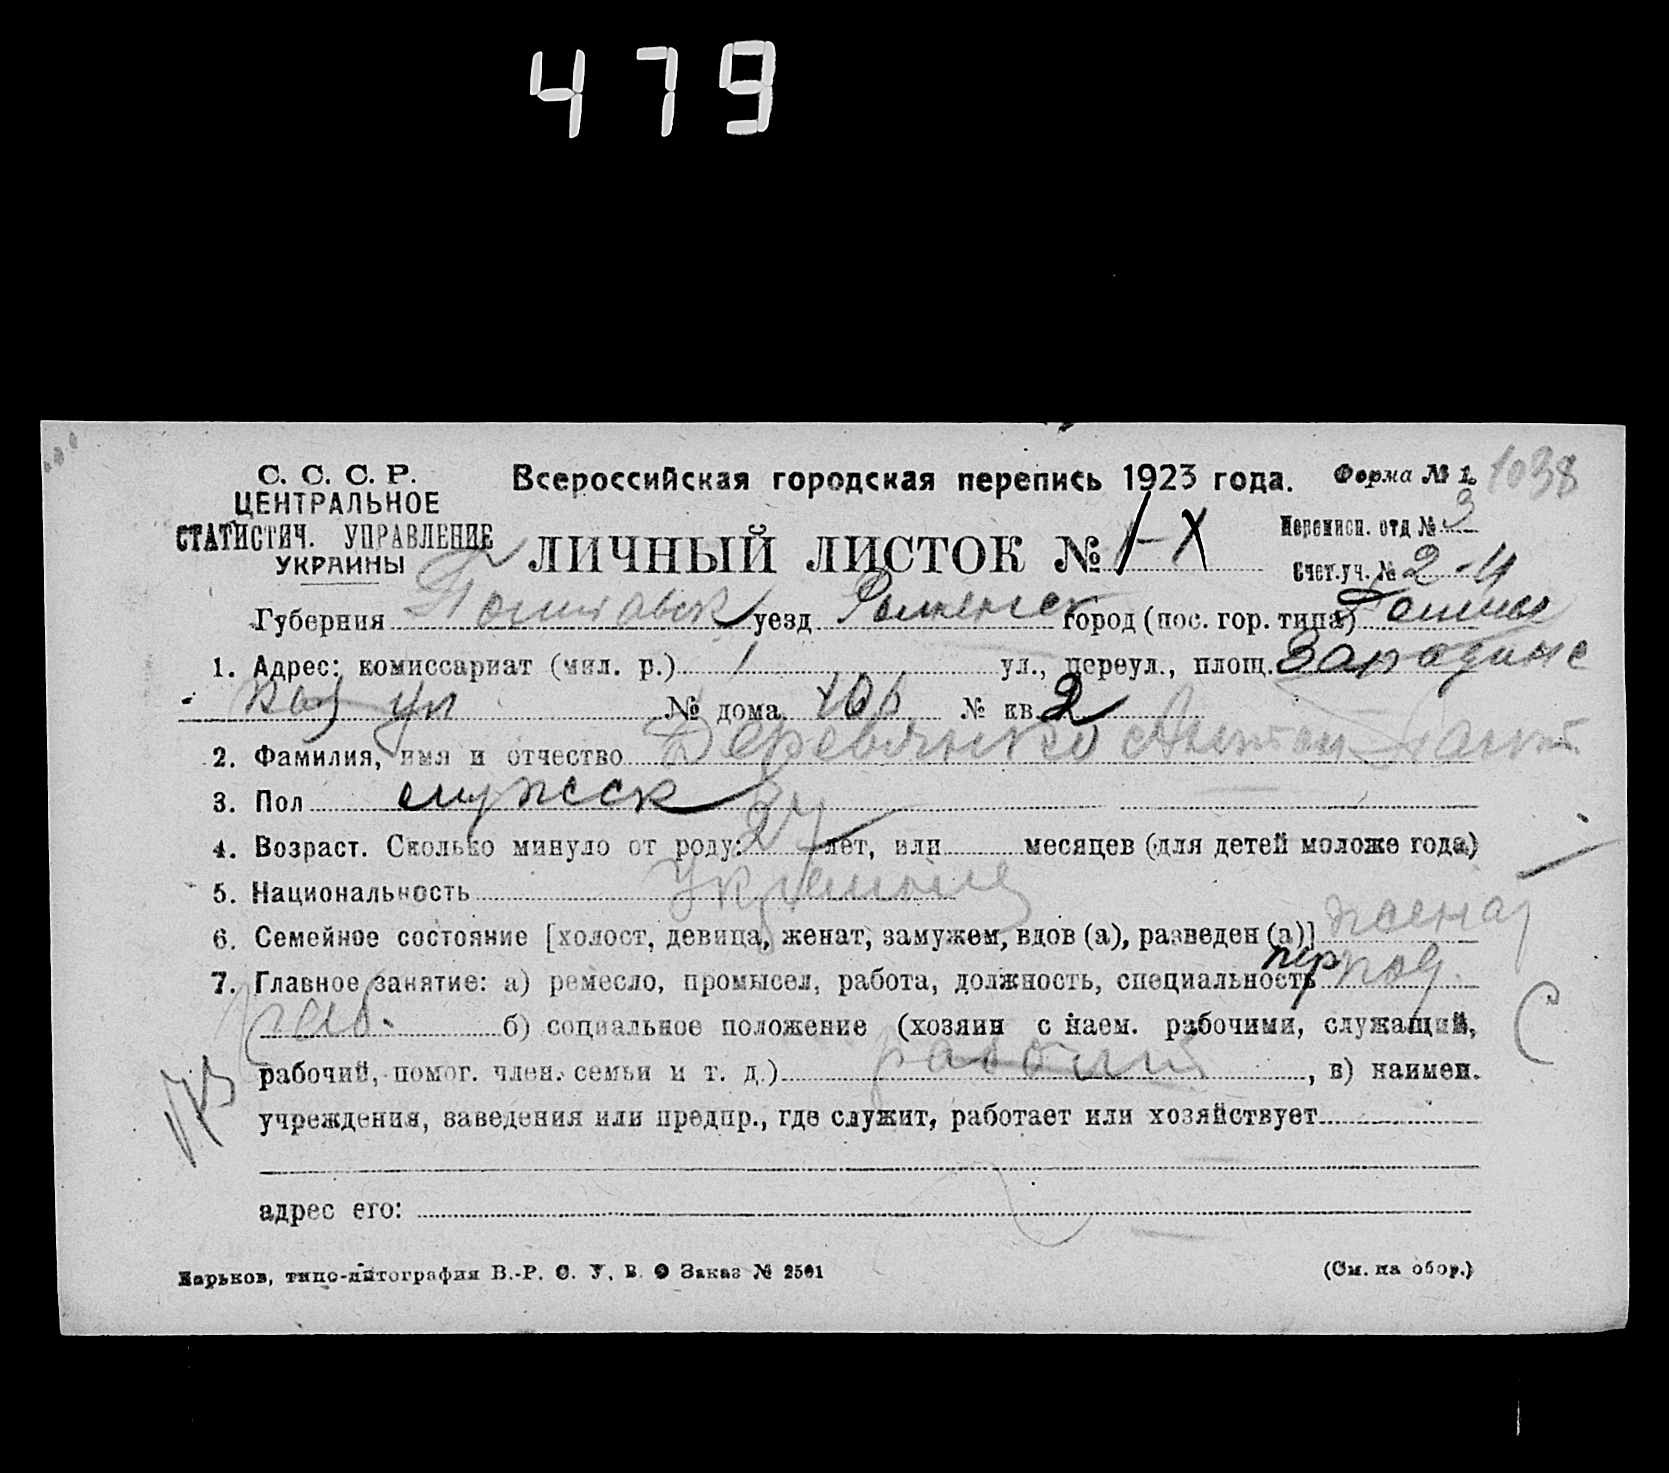 479
С. С. С. Р.
ЦЕНТРАЛЬНОЕ
СТАТИСТИЧ. УПРАВЛЕНИЕ
УКРАИНЫ
Всероссийская городская перепись 1923 года.
Форма № 1. 1038
ЛИЧНЫЙ ЛИСТОК № 1-X
Переписн. отд № 3
Счет.уч. № 2-4
Губерния Полтавск уезд Роменск город (пос. гор. типа) Ромны
1. Адрес: комиссариат (мил. р.) 1 ул., переул., площ.
ул № дома № кв 2
2. Фамилия, имя и отчество Деревянко Антон
3. Пол мужск
4. Возраст. Сколько минуло от роду: 27 лет, или месяцев (для детей моложе года)
5. Национальность Украинец
6. Семейное состояние [холост, девица, женат, замужем, вдов (а), разведен (а)] женат
7. Главное занятие: а) ремесло, промысел, работа, должность, специальность
раб. б) социальное положение (хозяин с наем. рабочими, служащий,
рабочий, помог. член. семьи и т. д.) рабочий, в) наимен.
учреждения, заведения или предпр., где служит, работает или хозяйствует
адрес его:
Харьков, типо-литография В.-Р. С. У. В. О Заказ № 2501
(См. на обор.)